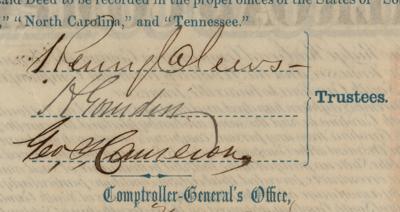 said Deed to be recorded in the proper offices of the States of "So
," "North Carolina," and "Tennessee."
Henry Clews
H Gourdin
Geo. S. Cameron
Trustees.
Comptroller-General's Office,